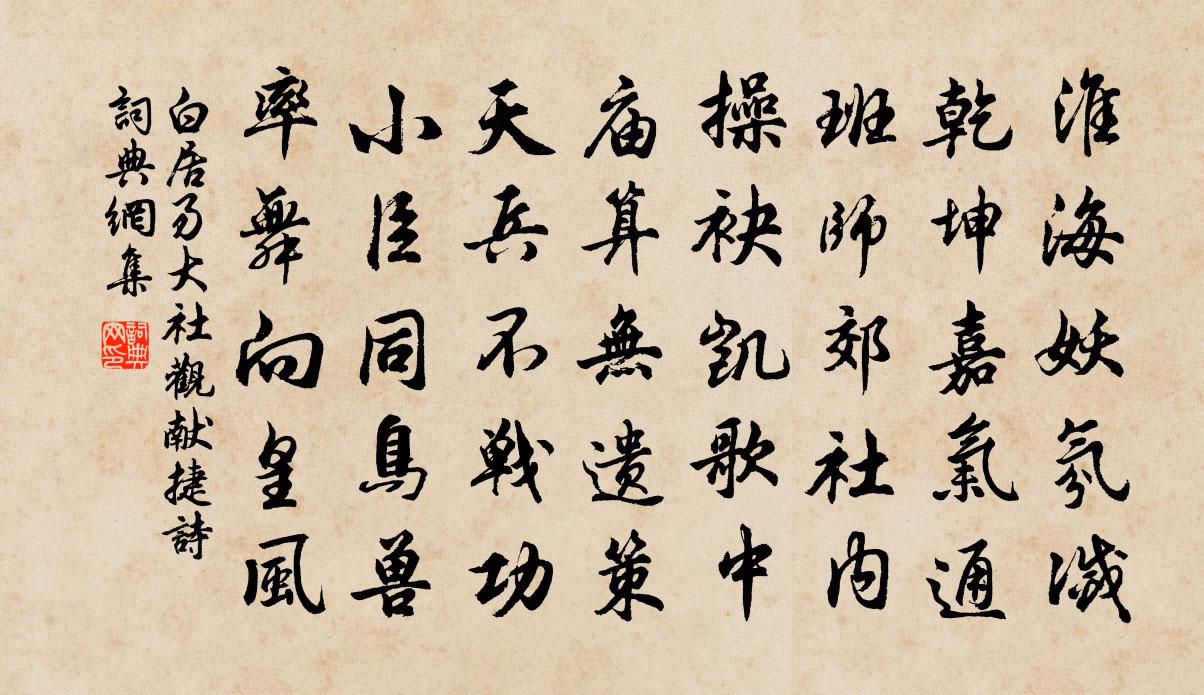 淮海妖氛滅
乾坤嘉氣通
班師郊社內
操袂凱歌中
庙算無遗策
天兵不戦功
小臣同鳥兽
率舞向皇風
白居易大社觀献捷詩
詞典網集
詞典网印